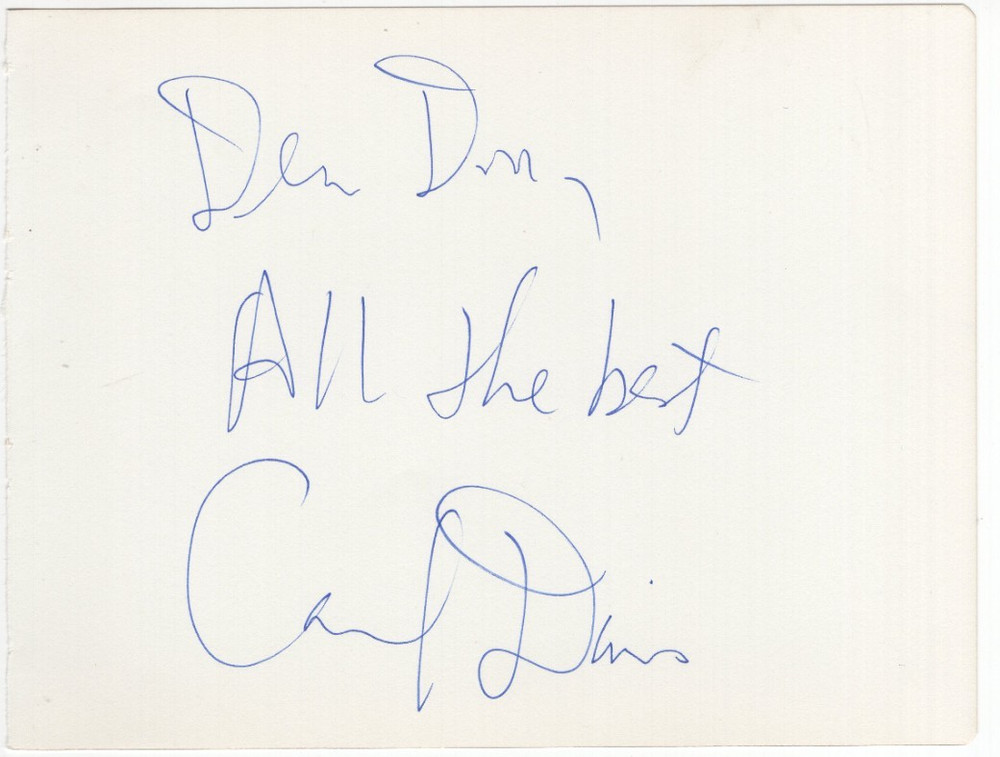 Dear Don,
All the best
Carl Davis